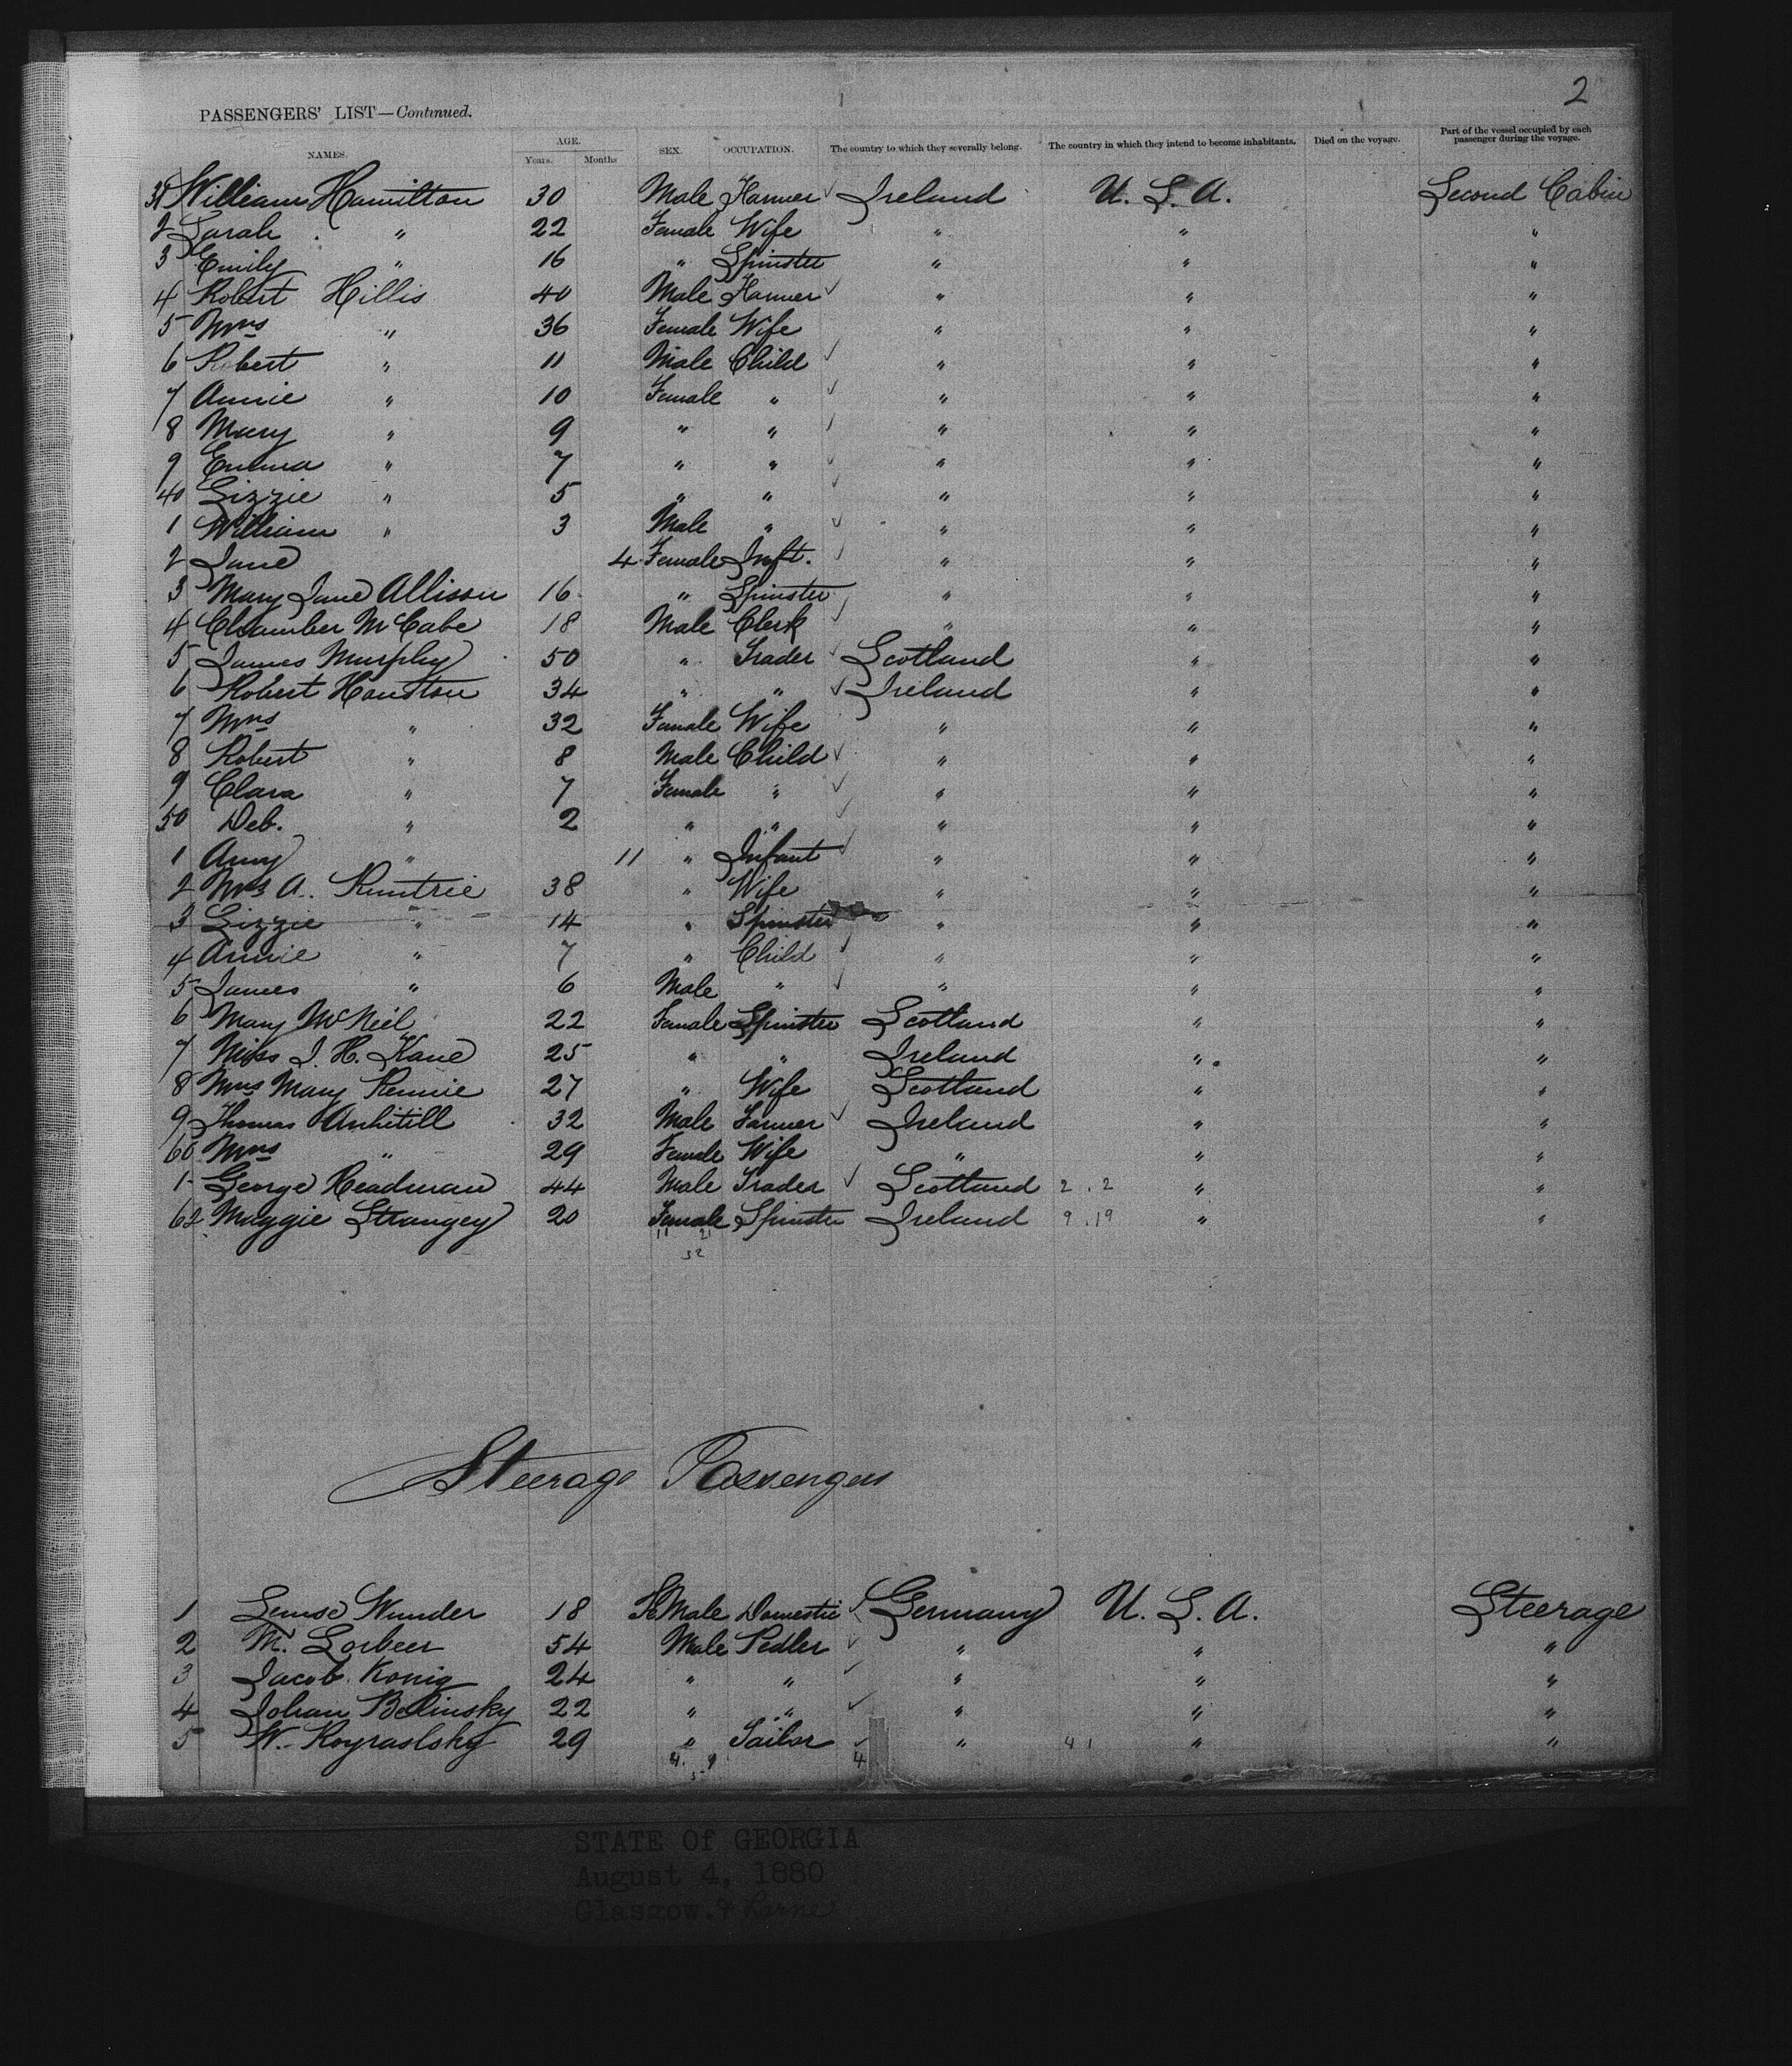 2
PASSENGERS' LIST—Continued.
NAMES. AGE. Years. Months SEX. OCCUPATION. The country to which they severally belong. The country in which they intend to become inhabitants. Died on the voyage. Part of the vessel occupied by each passenger during the voyage.
31 William Hamilton 30 Male Farmer Ireland U. S. A. Second Cabin
2 Sarah " 22 Female Wife " " "
3 Emily " 16 " Spinster " " "
4 Robert Hillis 40 Male Farmer " " "
5 Mrs " 36 Female Wife " " "
6 Robert " 11 Male Child " " "
7 Annie " 10 Female " " " "
8 Mary " 9 " " " " "
9 Emma " 7 " " " " "
40 Lizzie " 5 " " " " "
1 William " 3 Male " " " "
2 Jane 4 Female Inft. " " "
3 Mary Jane Allison 16 " Spinster " " "
4 Chamber McCabe 18 Male Clerk " " "
5 James Murphy 50 " Trader Scotland " "
6 Robert Houston 34 " " Ireland " "
7 Mrs " 32 Female Wife " " "
8 Robert " 8 Male Child " " "
9 Clara " 7 Female " " " "
50 Deb. " 2 " " " " "
1 Amy " 11 " Infant " " "
2 Mrs A. Rimtrie 38 " Wife " " "
3 Lizzie " 14 " Spinster " " "
4 Annie " 7 " Child " " "
5 James " 6 Male " " " "
6 Mary McNeil 22 Female Spinster Scotland " "
7 Miss J. H. Kane 25 " " Ireland " "
8 Mrs Mary Rennie 27 " Wife Scotland " "
9 Thomas Anhitill 32 Male Farmer Ireland " "
60 Mrs " 29 Female Wife " " "
1 George Readman 44 Male Trader Scotland 2 . 2 " "
62 Maggie Strangey 20 Female Spinster Ireland 9 . 19 " "
11 21
32
Steerage Passengers
1 Louise Wunder 18 FeMale Domestic Germany U. S. A. Steerage
2 M. Lorbeer 54 Male Pedler " " "
3 Jacob Konig 24 " " " " "
4 Johan Belinsky 22 " " " " "
5 W. 29 " Sailor " 4 1 " "
4
STATE Of GEORGIA
August 4, 1880
Glasgow.& Larne